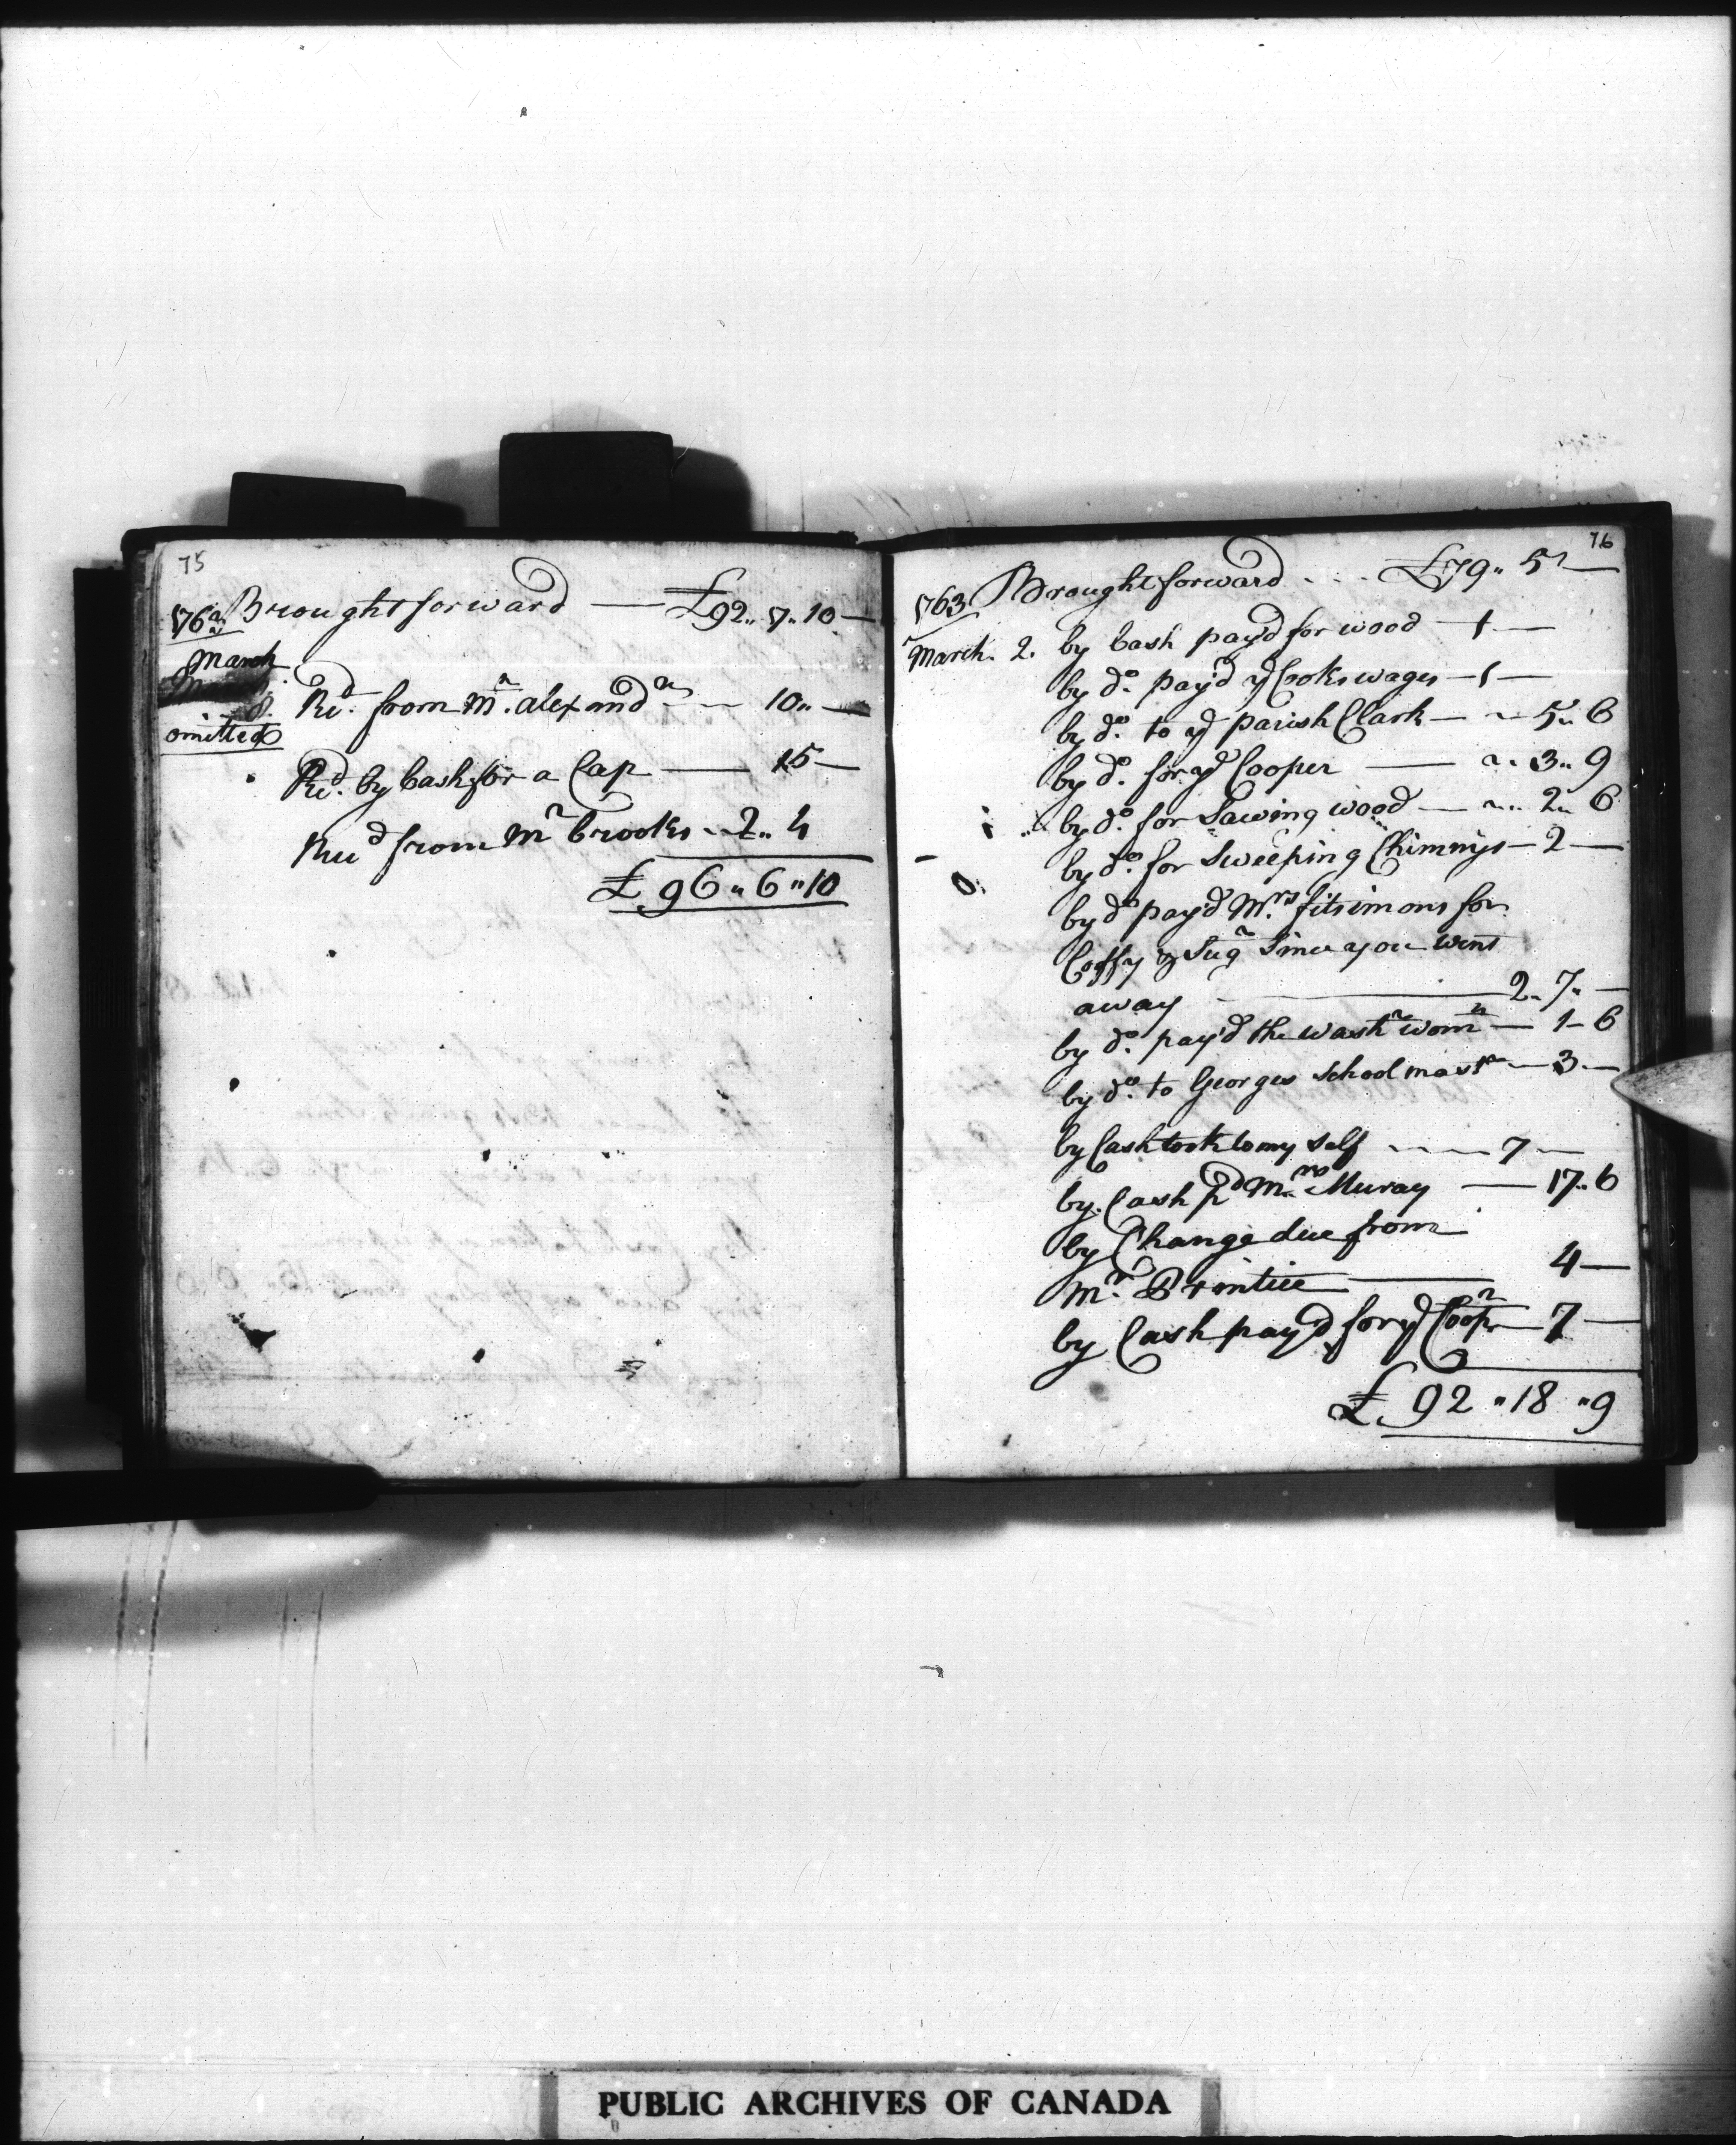 75
1763 Brought forward — £92,, 7,, 10 —
March
8.
omitted
Rd. from Mr. Alexandr — 10,, —
Rd. by Cash for a Cap — 15 —
Recd from Mr Brooks ,, 2,, 4
£ 96 ,, 6 ,, 10
76
1763 Brought forward . . . £79,, 5 —
March. 2. by Cash pay'd for wood — 1 —
by do. pay'd ye Cooks wages — 1 —
by do. to ye parish Clark — ,, 5,, 6
by do. for ye Cooper — ,, 3,, 9
by do. for Sawing wood — ,, 2,, 6
by do. for Sweeping Chimnys — 2 —
by do pay'd Mrs. fitsimons for
Coffy & Sugr Since you went
away — 2,, 7,, —
by do. pay'd the washr womn — 1 — 6
by do. to Georges School mastr — 3 —
by Cash took to my Self — 7 —
by Cash pd Mrs Muray — 17,, 6
by Change due from
Mr. Printice — 4 —
by Cash pay'd for ye Coopr — 7 —
£ 92 ,, 18 ,, 9
PUBLIC ARCHIVES OF CANADA